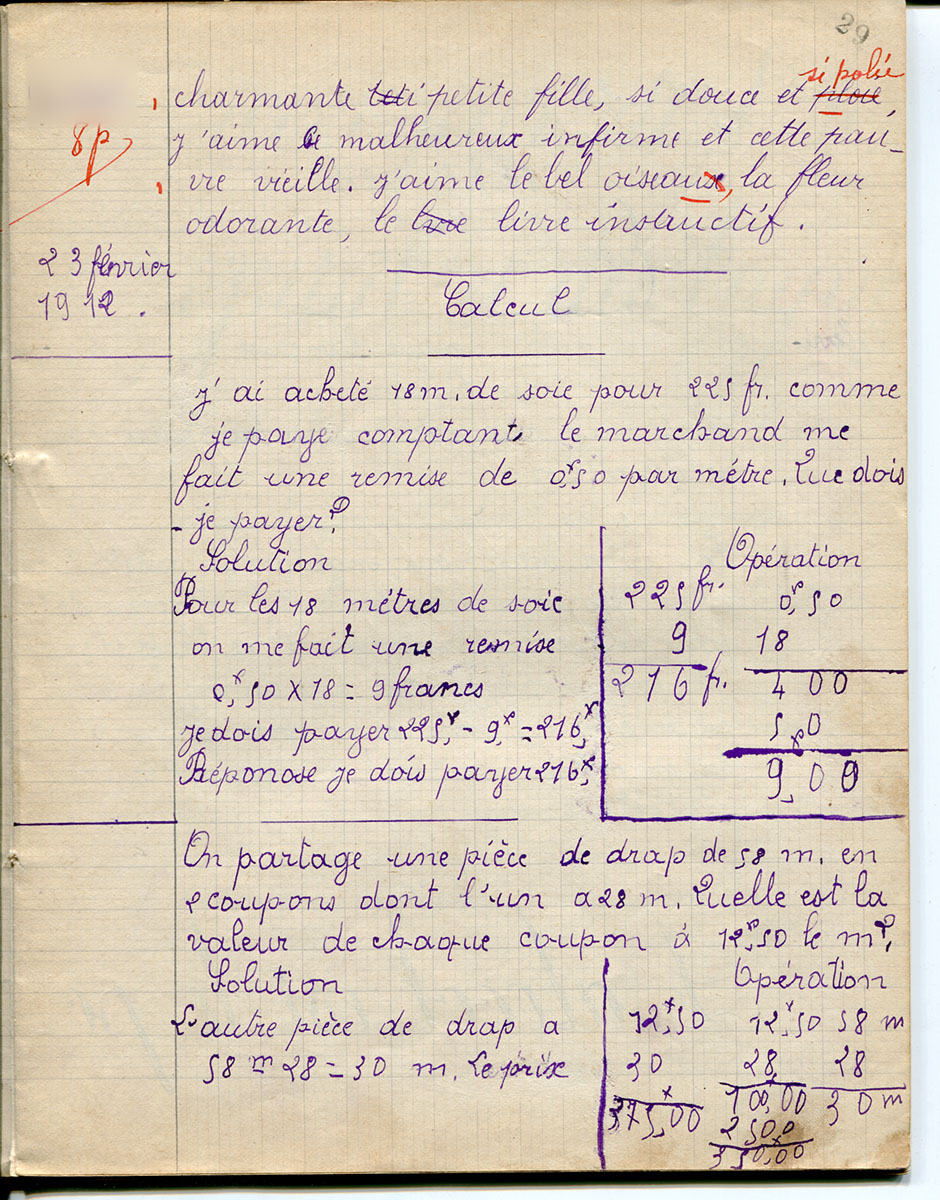 29
si polie
charmante petite fille, si douce et
8p
j'aime le malheureux infirme et cette pau-
vre vieille. j'aime le bel oiseaux, la fleur
odorante, le livre instructif.
23 février
1912.
Calcul
j'ai acheté 18m. de soie pour 225 fr. comme
je paye comptant le marchand me
fait une remise de 0,50 par métre. Que dois
-je payer?
Solution
Pour les 18 métres de soie
on me fait une remise
0,50 X 18 = 9 francs
je dois payer 225, - 9, = 216,
Réponose je dois payer 216,
Opération
225 fr. 0,50
9 18
216 fr. 400
50
9,00
On partage une pièce de drap de 58 m. en
2 coupons dont l'un a 28 m. Quelle est la
valeur de chaque coupon à 12,50 le m?
Solution
L'autre pièce de drap a
58 m - 28 = 30 m. Le prix
Opération
12,50 12,50 58 m
30 28 28
375,00 100,00 30 m
2500
350,00